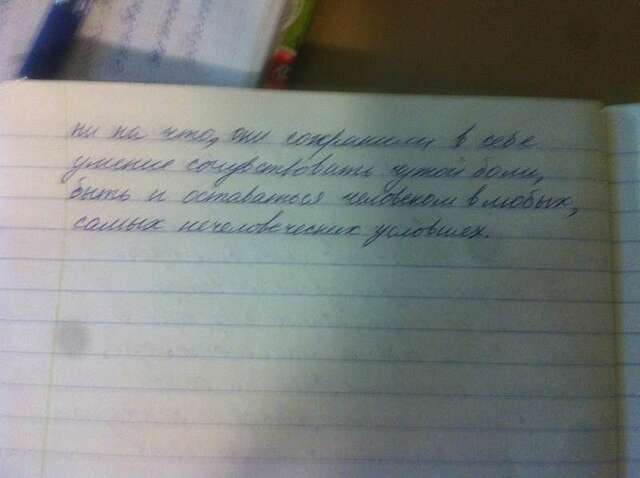 ни на что, они сохранили в себе
умение сочувствовать чужой боли,
быть и оставаться человеком в любых,
самых нечеловеческих условиях.